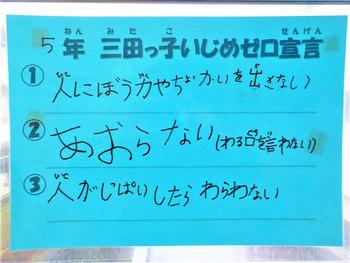 ５年 三田っ子いじめゼロ宣言
① 人にぼう力やちょっかいを出さない
② あおらない(わる口を言わない)
③ 人がしっぱいしたらわらわない